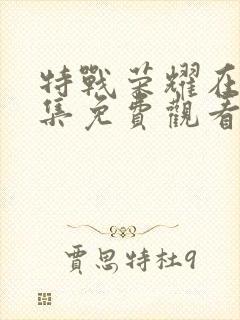 特戰荣耀在
集免費觀看
賈思特杜9